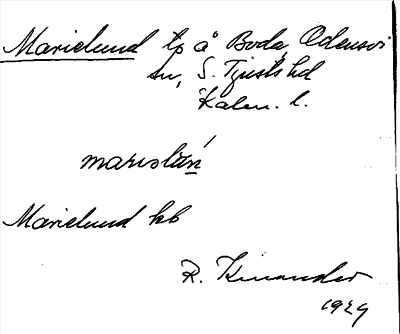 Marielund tp å Boda, Odensvi
sn, S. Tjusts hd
Kalm. l.
marislúǹ
Marielund kb
R. Kinander
1929